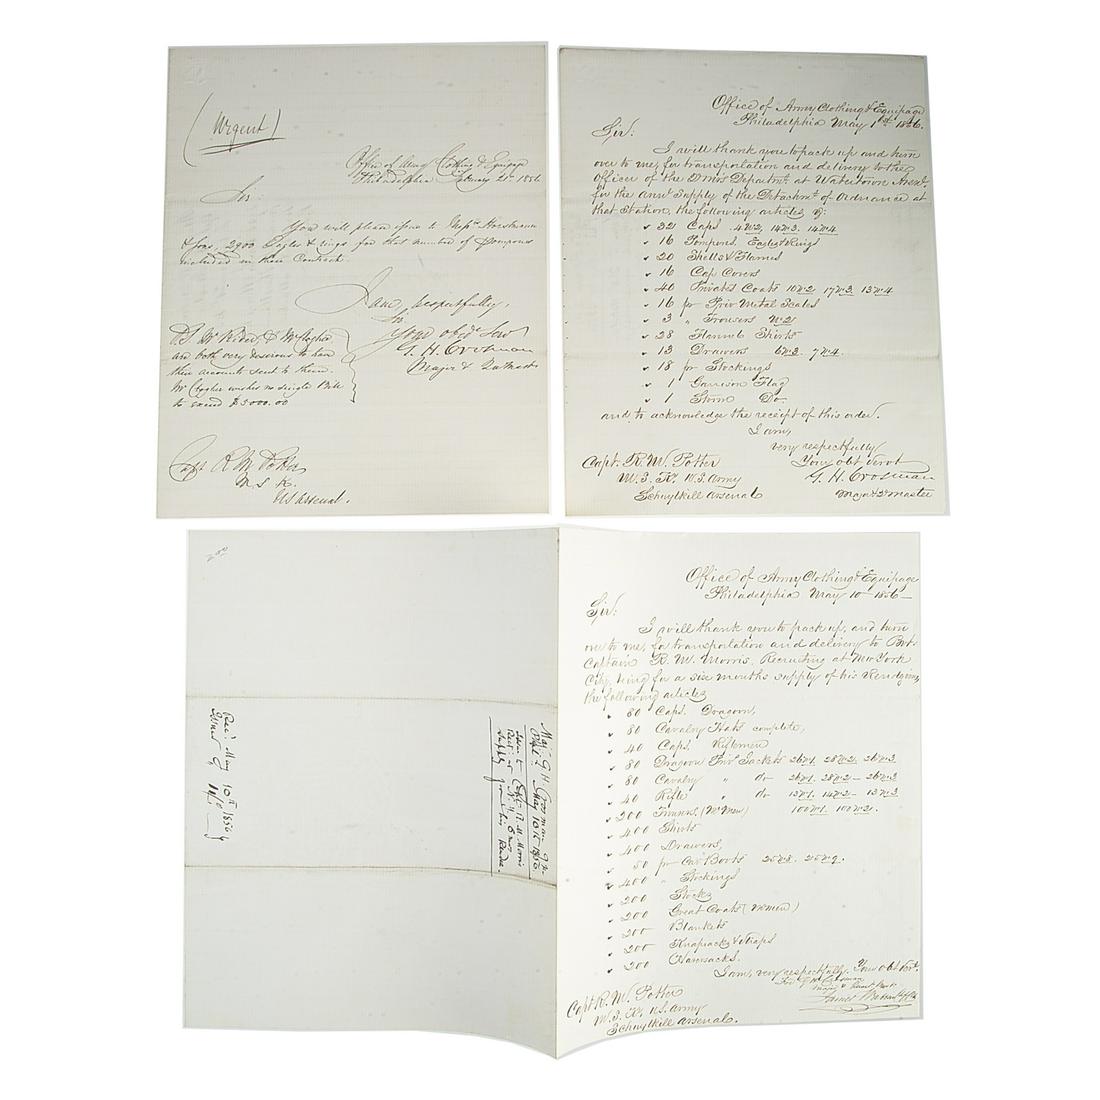 (Urgent)
Office of Army Clothing & Equipage
Philadelphia February 21st 1856
Sir:
You will please issue to Messrs Horstmann
& Sons, 2900 Eagles & rings for that number of Pompons
included in their Contract.
I am, respectfully,
Sir
Your obdt Servt
G. H. Crosman
Major & Qr Master
are both very desirous to have
their accounts sent to them.
wishes no single Bill
to exceed $5000.00
Capt R M Potter
M S K.
U S Arsenal.
Office of Army Clothing & Equipage
Philadelphia May 1st 1856.
Sir:
I will thank you to pack up and turn
over to me, for transportation and delivery to the
Officer of the Ordnance Departmt. at Watertown Arsenl.
for the annl. Supply of the Detachmt. of Ordnance at
that Station, the following articles
32 Caps 4 No 2, 14 No 3. 14 No 4.
16 Pompons. Eagles & Rings
20 Shells & Flames
16 Cap Covers
40 Privates Coats 10 No 2 17 No 3 13 No 4
16 pr Priv Metal Scales
3 " Trousers No 2
28 Flannel Shirts
13 Drawers 6 No 3. 7 No 4.
18 pr Stockings
1 Garrison Flag
1 Storm Do.
and to acknowledge the receipt of this order.
I am,
very respectfully
Your obt Servt
G. H. Crosman
Major & Qr master
Capt. R. W. Potter
M. S. Kr. U. S. Army
Schuylkill Arsenal
Office of Army Clothing & Equipage
Philadelphia May 10 1856
Sir:
I will thank you to pack up, and turn
over to me, for transportation and delivery to Bvt.
Captain R. W. Morris, Recruiting at New York
City, being for a six months supply of his Rendezvous,
the following articles
80 Caps. Dragoon,
80 Cavalry Hats complete,
40 Caps. Riflemen
80 Dragoon Priv. Jackets 26 No 1. 28 No 2 26 No 3
80 Cavalry " do 26 No 1. 28 No 2 26 No 3
40 Rifle " do 13 No 1 14 No 2 13 No 3
200 Trousers, 100 No 1. 100 No 2.
400 Shirts
400 Drawers,
50 pr Cav Boots 25 No 8. 25 No 9.
400 " Stockings
200 Stocks
200 Great Coats
200 Blankets
200 Knapsacks & Straps
200 Haversacks.
I am, very respectfully. Your obt Servt.
For G. H. Crosman
Major &
Capt R. W. Potter
M. S. Kr. U. S. Army
Schuylkill Arsenal.
Maj. G H Crosman
May 10th 1856
Capt. R. M Morris
supply for his Rendz.
Recd May 10th 1856